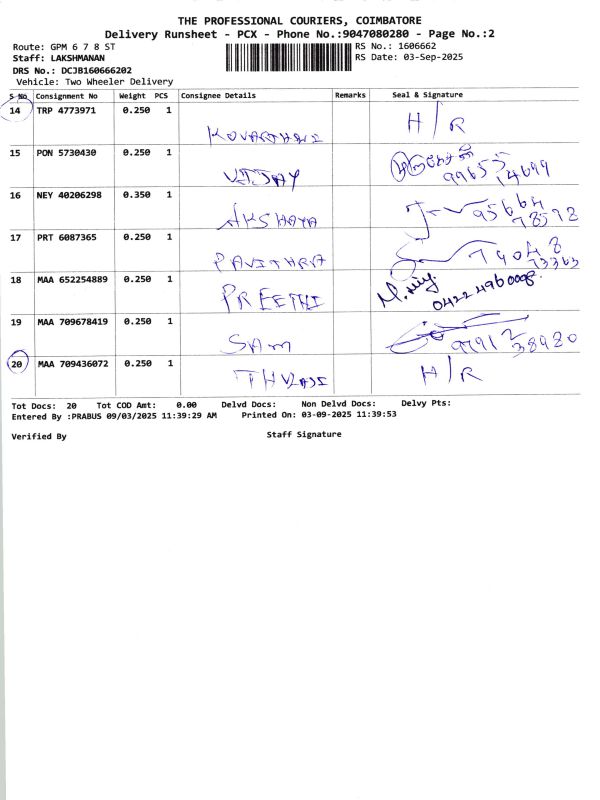 THE PROFESSIONAL COURIERS, COIMBATORE
Delivery Runsheet - PCX - Phone No.:9047080280 - Page No.:2
Route: GPM 6 7 8 ST
RS No.: 1606662
Staff: LAKSHMANAN
RS Date: 03-Sep-2025
DRS No.: DCJB160666202
Vehicle: Two Wheeler Delivery
S No. Consignment No Weight PCS Consignee Details Remarks Seal & Signature
14 TRP 4773971 0.250 1 H/R
15 PON 5730430 0.250 1 VIJAY 99655 14699
16 NEY 40206298 0.350 1 AKSHAYA 95664 78592
17 PRT 6087365 0.250 1 PAVITHRA 79048 73363
18 MAA 652254889 0.250 1 PREETHI 0422 4960008
19 MAA 709678419 0.250 1 SAM 97912 38980
20 MAA 709436072 0.250 1 H/R
Tot Docs: 20 Tot COD Amt: 0.00 Delvd Docs: Non Delvd Docs: Delvy Pts:
Entered By :PRABUS 09/03/2025 11:39:29 AM Printed On: 03-09-2025 11:39:53
Verified By Staff Signature